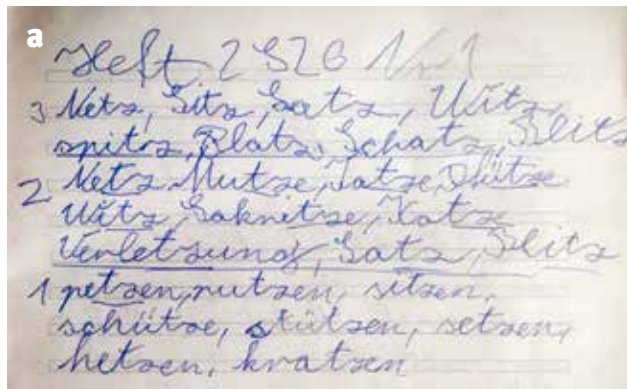 a
Heft 2 S 26 Nr 1
3 Netz, Sitz, Satz, Witz,
spitz, Platz, Schatz, Slitz
2 Netz Mutze, Tatze,
Witz, Katze
Verletzung, Satz, Slitz
1 petzen, putzen, sitzen,
schütze, stützen, setzen,
hetzen, kratzen